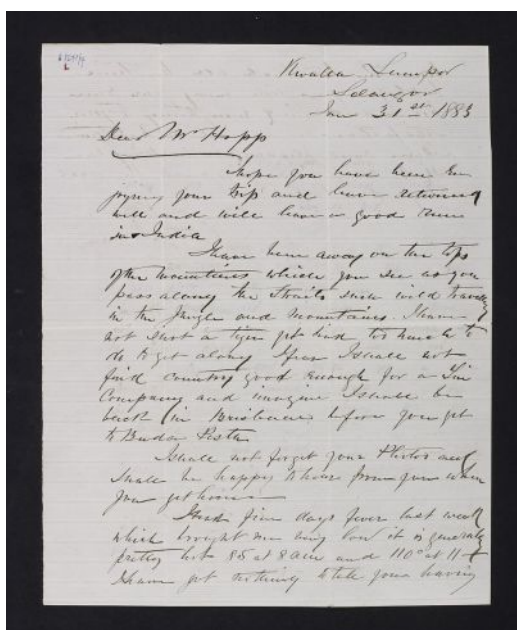 Kwalla Lumpor
Selangor
Jan 31st 1883
Dear Mr Hopp
I hope you have been En
joying your trip and have returned
well and will have a good time
in India
I have been away on the tops
of the Mountains which you see as you
pass along the Straits wild travelling
in the Jungle and Mountains. I have
not shot a tiger yet had too much to
do to get along I fear I shall not
find country good enough for a Tin
Company and imagine I shall be
back in Brisbane before you get
to Buda Pesta
I shall not forget your Photos and
shall be happy to hear from you when
you get home
I had five days fever last week
which brought me very low it is generally
pretty hot 85 at 8 am and 110° at 11
I have got nothing to tell you having